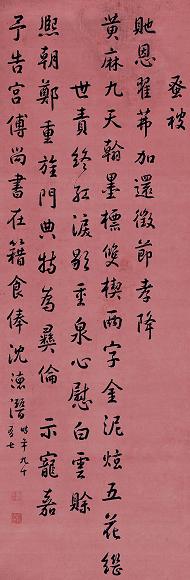 蚤被
貤恩翟茀加還徵節孝降
黃麻九天翰墨標雙楔兩字金泥炫五花繼
世責終紅淚歇重泉心慰白雲賒
熙朝鄭重旌門典特為彝倫示寵嘉
予告宮傅尚書在籍食俸沈德潛
時年九十